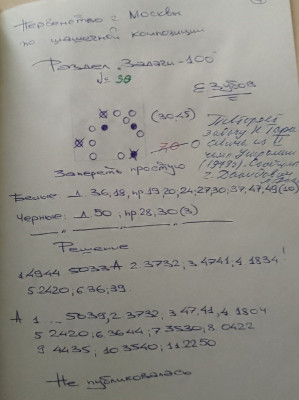 Первенство г. Москвы
по шашечной композиции
Раздел „Задачи-100"
№ 38
Е Зубов
(30.45)
Повторяет
задачу Н.
из II
(1992г).
Запереть простую
Белые: 36,18, пр.19,20,24,27,30,37,47,49(10)
Черные: 50; пр 28,30 (3)
Решение
1 4944 5033А 2.3732; 3 4741, 4 1834!
5 2420; 6.36;39.
А 1 ... 5039,2 3732, 3 47,41, 4 1804
5 2420; 6.3644; 7 3530; 8.0422
9 4435, 10 3540; 11.2250
Не публиковалась